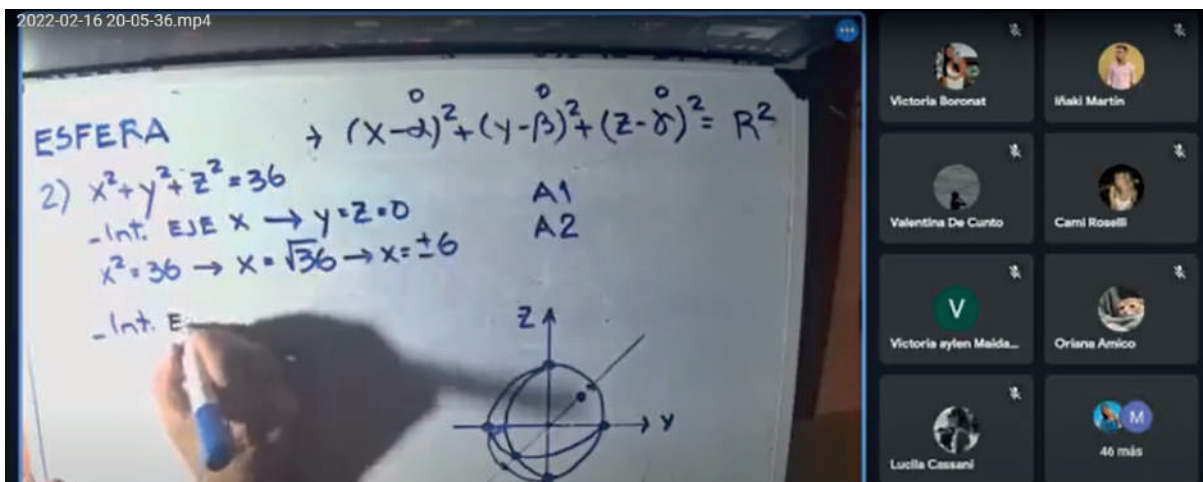 2022-02-16 20-05-36.mp4
ESFERA → (x-α)²+(y-β)²+(z-γ)²= R²
0 0 0
2) x²+y²+z²=36
A1
-Int. EJE X → y=z=0
A2
x²=36 → x=√36 → x=±6
-Int. E
Z
Y
Victoria Boronat
Iñaki Martin
Valentina De Cunto
Cami Roselli
V
Victoria aylen Maida...
Oriana Amico
Lucila Cassani
M
46 más